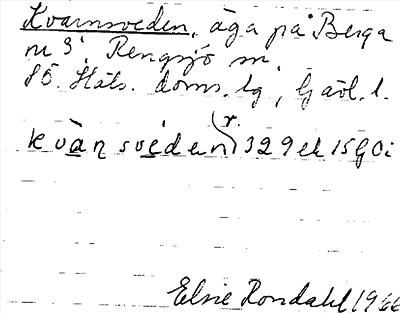 Kvarnsveden, äga på Berga
nr 3, Rengsjö sn,
SÖ. Häls. doms. lg, Gävl. l.
kvạ̄ṇsvẹden r. 329 ek 15 G 0 i
Elsie Rondahl 1966